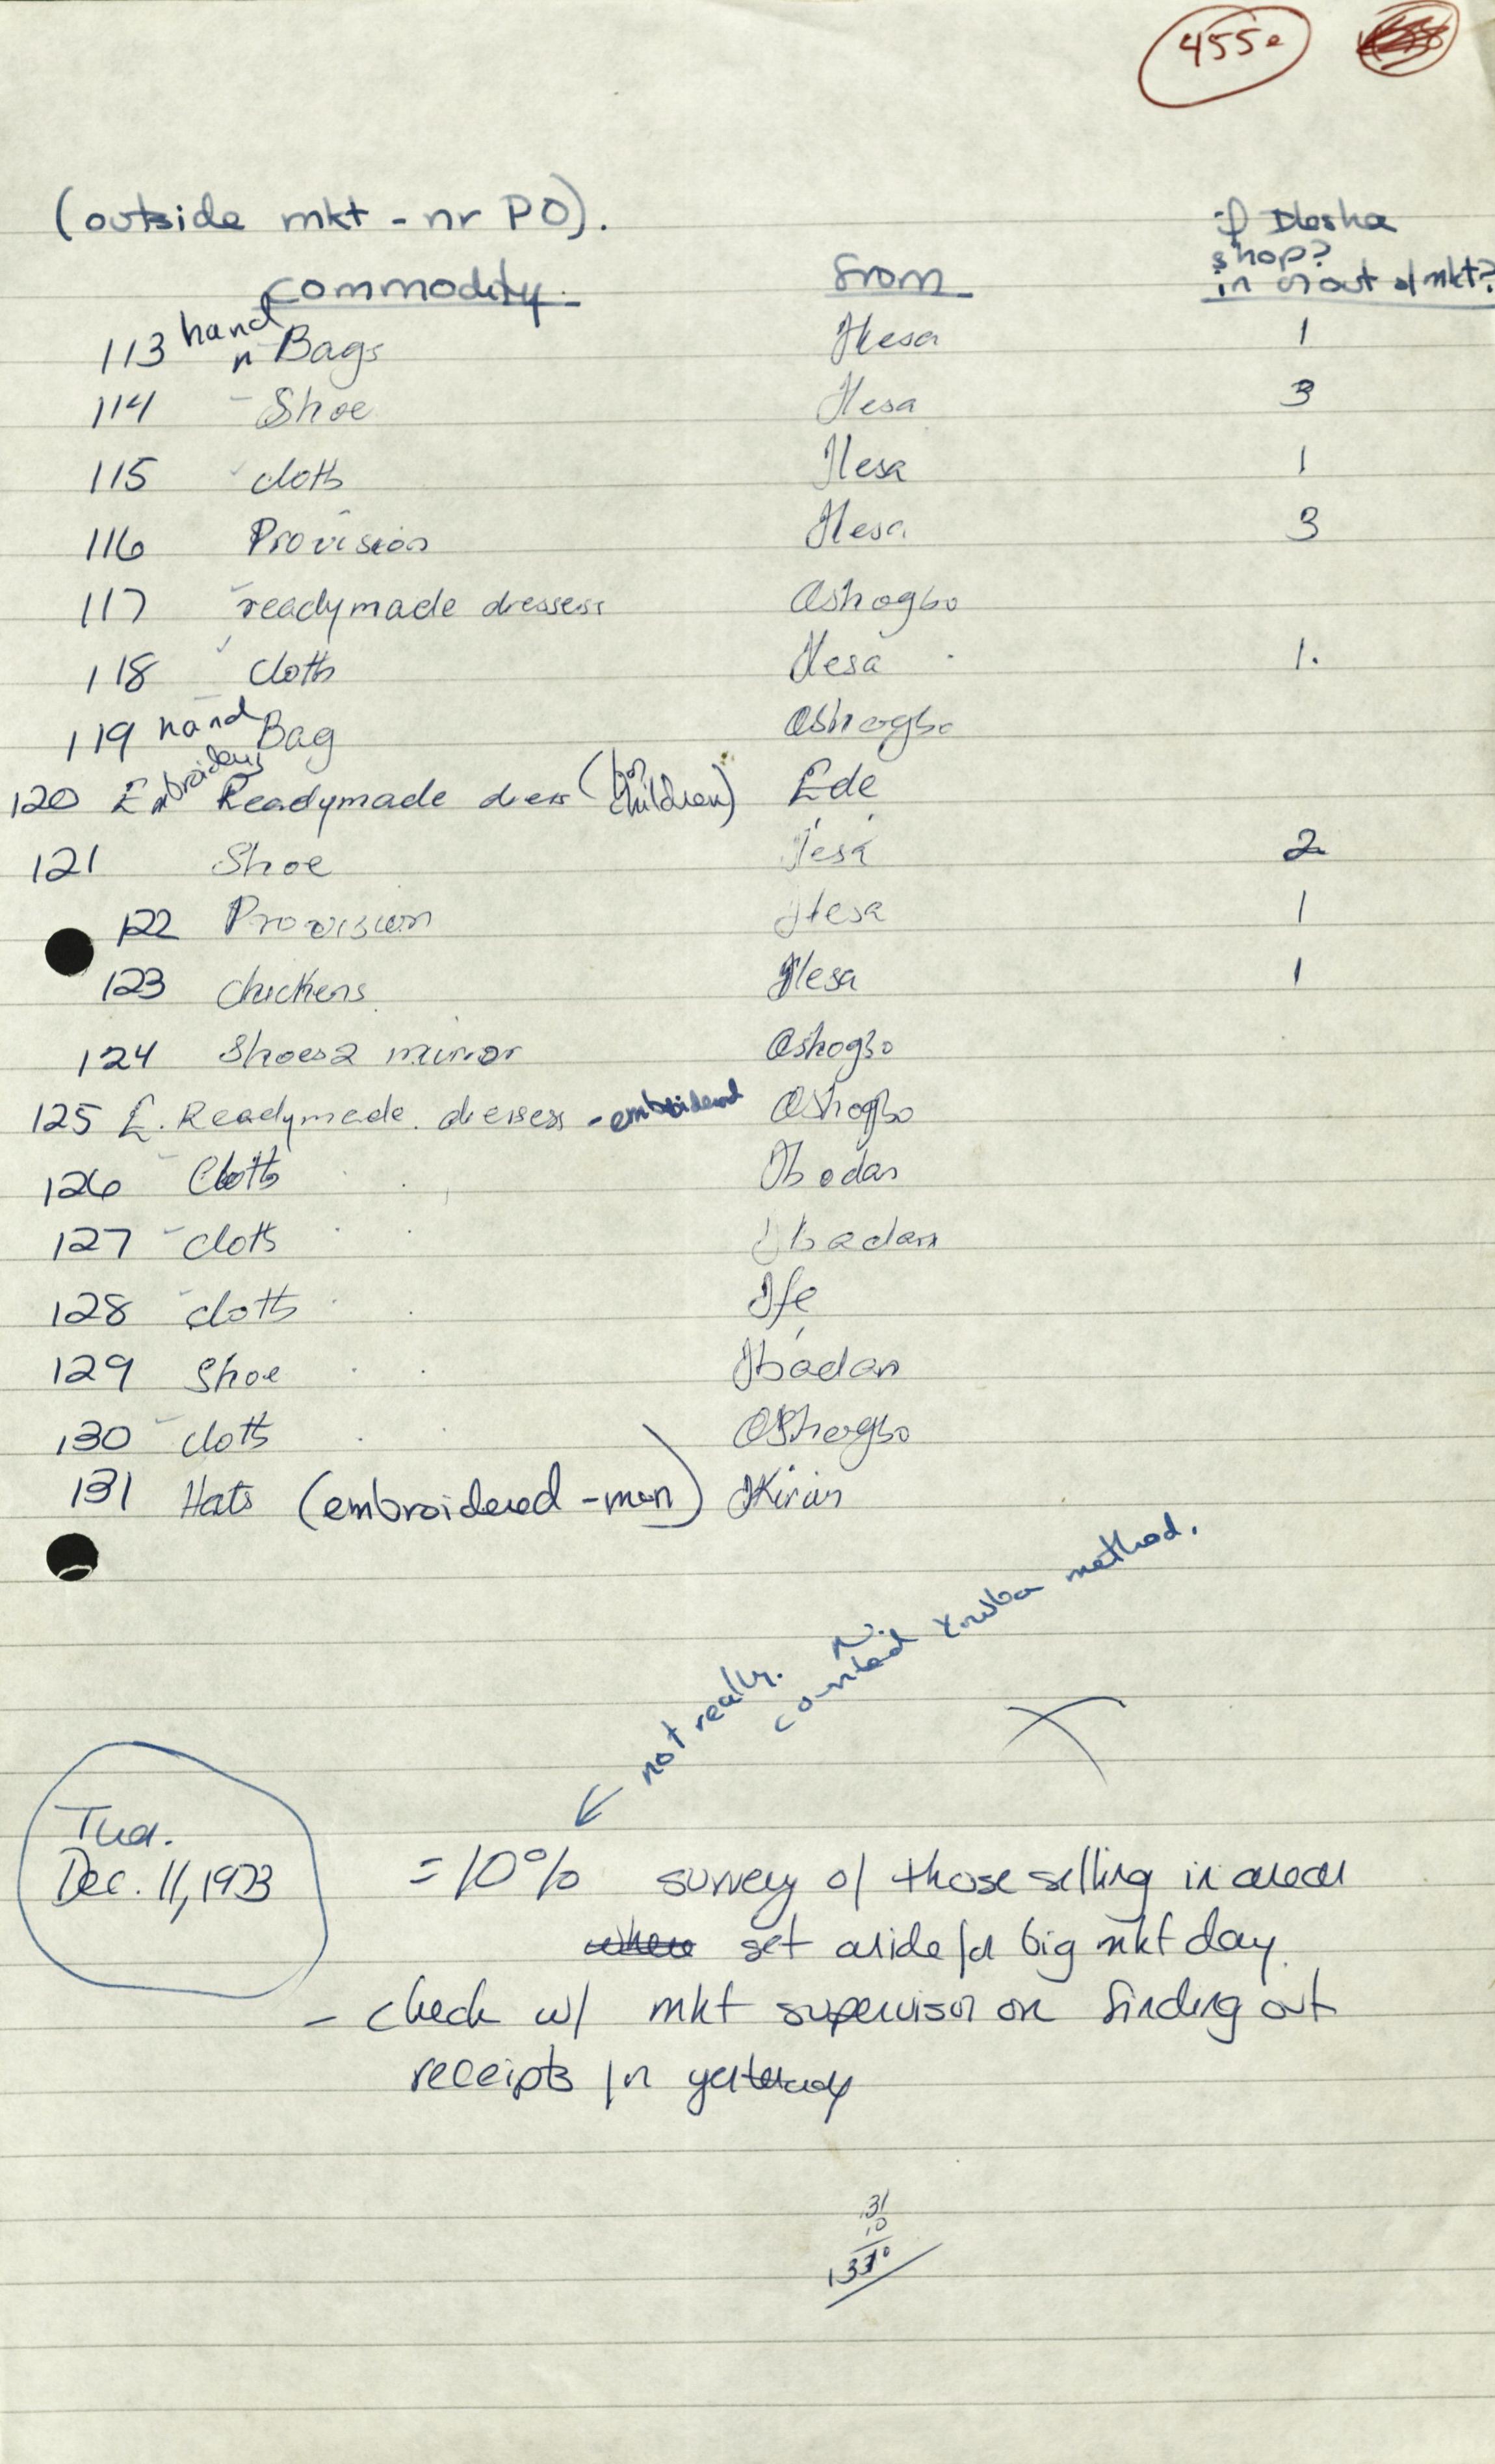 455e
(outside mkt - nr PO).
if Ilesha
shop?
in or out of mkt?
commodity from
113 hand Bags Ilesa 1
114 - Shoe Ilesa 3
115 cloth Ilesa 1
116 Provision Ilesa 3
117 readymade dressess Oshogbo
118 cloth Ilesa 1.
119 hand Bag Oshogbo
120 Embroidery Readymade dress (for children) Ede
121 Shoe Ilesa 2
122 Provision Ilesa 1
123 chickens Ilesa 1
124 Shoes & mirror Oshogbo
125 E. Readymade dressess - embroidered Oshogbo
126 Cloth Ibadan
127 - cloth Ibadan
128 cloth Ife
129 Shoe Ibadan
130 - cloth Oshogbo
131 Hats (embroidered - men) Ikirun
not really.
counted Yoruba method.
Tues.
Dec. 11, 1973
= 10% survey of those selling in areas
where set aside for big mkt day.
- check w/ mkt supervisor on finding out
receipts for yesterday
31
10
1310